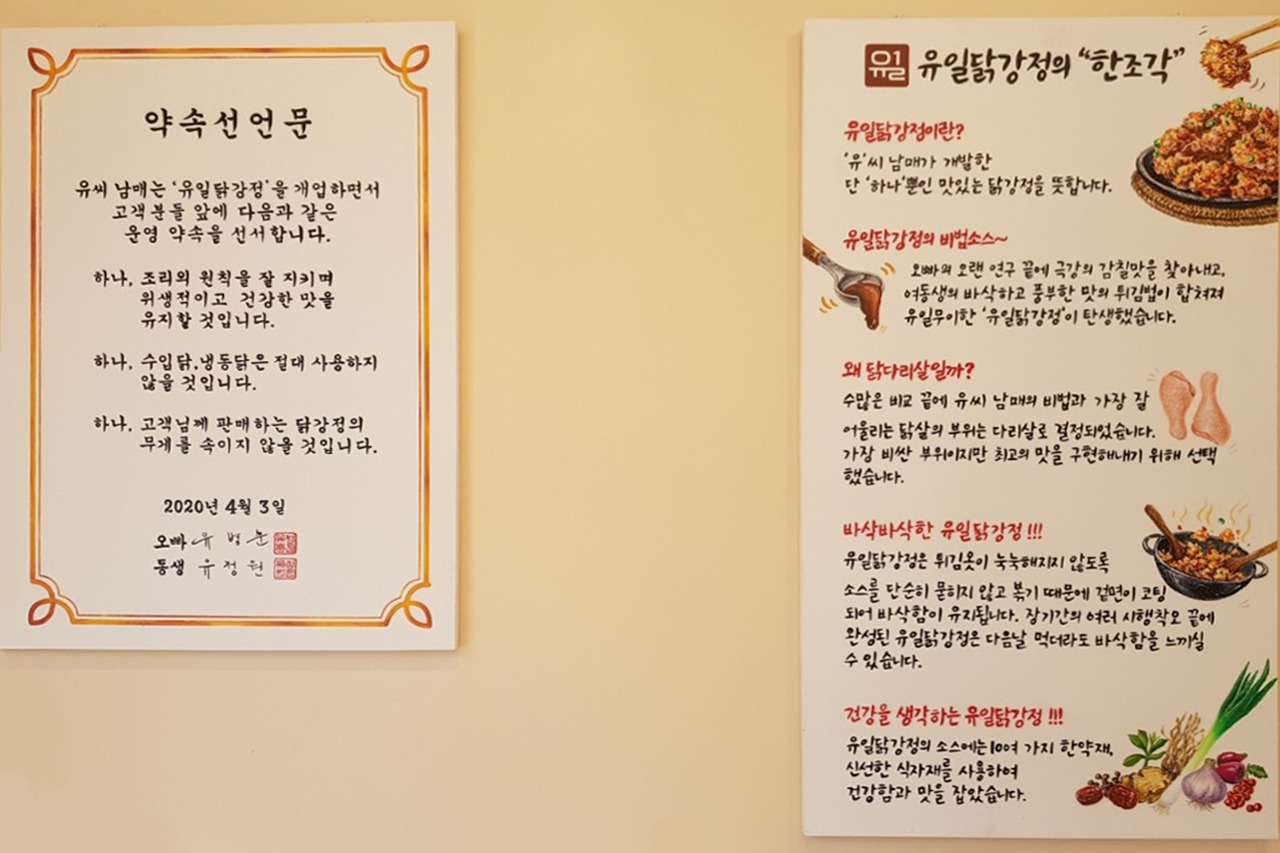 약속선언문
유씨 남매는 '유일닭강정'을 개업하면서
고객분들 앞에 다음과 같은
운영 약속을 선서합니다.
하나, 조리의 원칙을 잘 지키며
위생적이고 건강한 맛을
유지할 것입니다.
하나, 수입닭,냉동닭은 절대 사용하지
않을 것입니다.
하나, 고객님께 판매하는 닭강정의
무게를 속이지 않을 것입니다.
2020년 4월 3일
오빠 유병눈
동생 유정원
유일 유일닭강정의 "한조각"
유일닭강정이란?
'유'씨 남매가 개발한
단 '하나'뿐인 맛있는 닭강정을 뜻합니다.
유일닭강정의 비법소스~
오빠의 오랜 연구 끝에 극강의 감칠맛을 찾아내고,
여동생의 바삭하고 풍부한 맛의 튀김법이 합쳐져
유일무이한 '유일닭강정'이 탄생했습니다.
왜 닭다리살일까?
수많은 비교 끝에 유씨 남매의 비법과 가장 잘
어울리는 닭살의 부위는 다리살로 결정되었습니다.
가장 비싼 부위이지만 최고의 맛을 구현해내기 위해 선택
했습니다.
바삭바삭한 유일닭강정!!!
유일닭강정은 튀김옷이 눅눅해지지 않도록
소스를 단순히 묻히지 않고 볶기 때문에 겉면이 코팅
되어 바삭함이 유지됩니다. 장기간의 여러 시행착오 끝에
완성된 유일닭강정은 다음날 먹더라도 바삭함을 느끼실
수 있습니다.
건강을 생각하는 유일닭강정!!!
유일닭강정의 소스에는 100여 가지 한약재,
신선한 식자재를 사용하여
건강함과 맛을 잡았습니다.